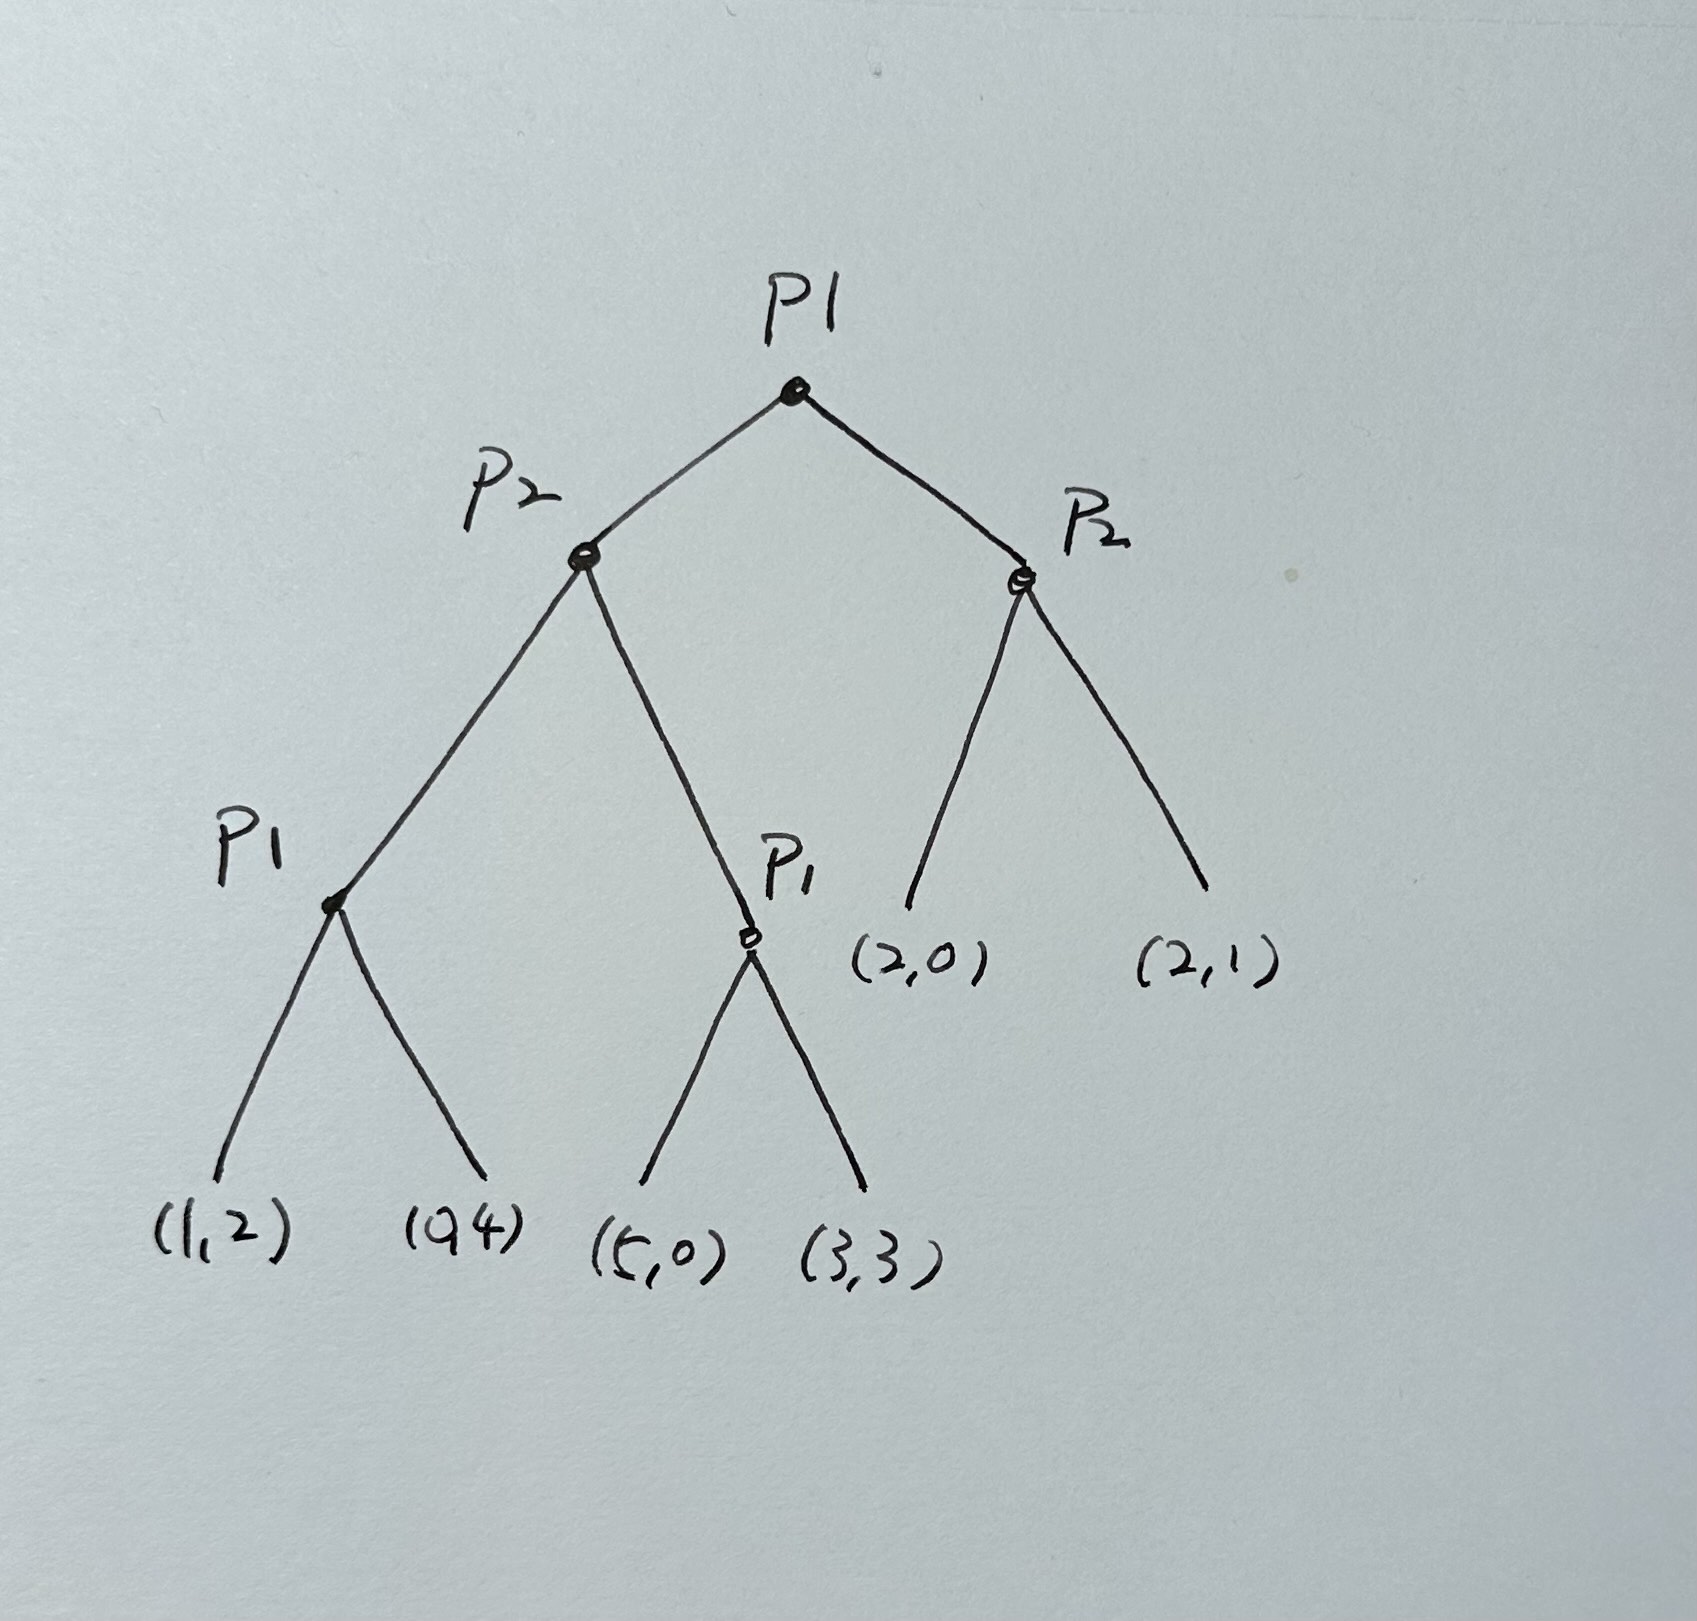 P1
P2
P2
P1
P1
(2,0)
(2,1)
(1,2)
(0,4)
(5,0)
(3,3)